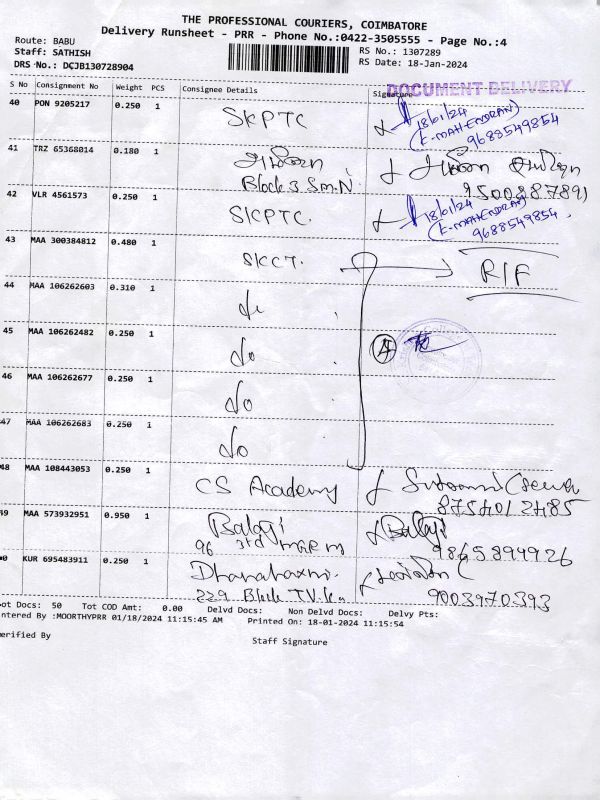 THE PROFESSIONAL COURIERS, COIMBATORE
Delivery Runsheet - PRR - Phone No.:0422-3505555 - Page No.:4
Route: BABU
Staff: SATHISH
DRS No.: DCJB130728904
RS No.: 1307289
RS Date: 18-Jan-2024
DOCUMENT DELIVERY
S No Consignment No Weight PCS Consignee Details Signature
40 PON 9205217 0.250 1 SKPTC 18/01/24
(K-MAHENDRAN)
9688549854
41 TRZ 65368014 0.180 1
Block 3 Sm.N 9500887891
42 VLR 4561573 0.250 1 SKPTC. 18/01/24
(K-MAHENDRAN)
9688549854.
43 MAA 300384812 0.480 1 SKCT. R/F
44 MAA 106262603 0.310 1
45 MAA 106262482 0.250 1 do
46 MAA 106262677 0.250 1 do
47 MAA 106262683 0.250 1 do
48 MAA 108443053 0.250 1 CS Academy
8754012485
49 MAA 573932951 0.950 1 Balaji Balaji
96 3rd 9865899926
50 KUR 695483911 0.250 1
229 Block 9003970393
ot Docs: 50 Tot COD Amt: 0.00 Delvd Docs: Non Delvd Docs: Delvy Pts:
ntered By :MOORTHYPRR 01/18/2024 11:15:45 AM Printed On: 18-01-2024 11:15:54
erified By
Staff Signature